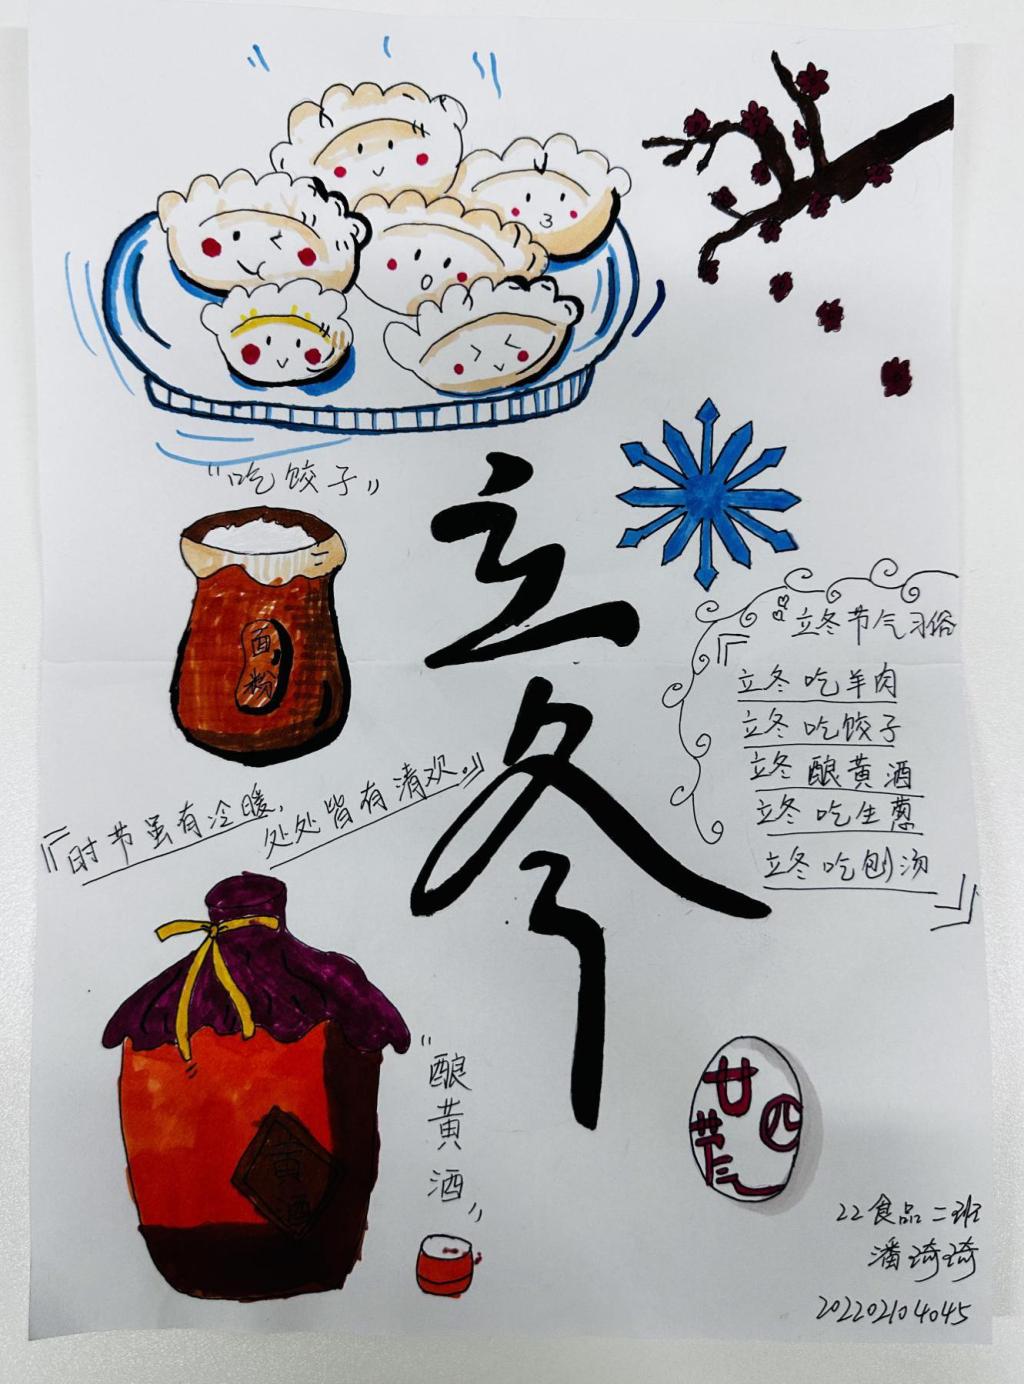 “吃饺子”
面粉
立冬
立冬节气习俗
『立冬吃羊肉
立冬吃饺子
立冬酿黄酒
立冬吃生葱
立冬吃刨汤』
『时节虽有冷暖，
处处皆有清欢。』
黄酒
“酿黄酒”
廿四
节气
22食品二班
潘琦琦
202202104045